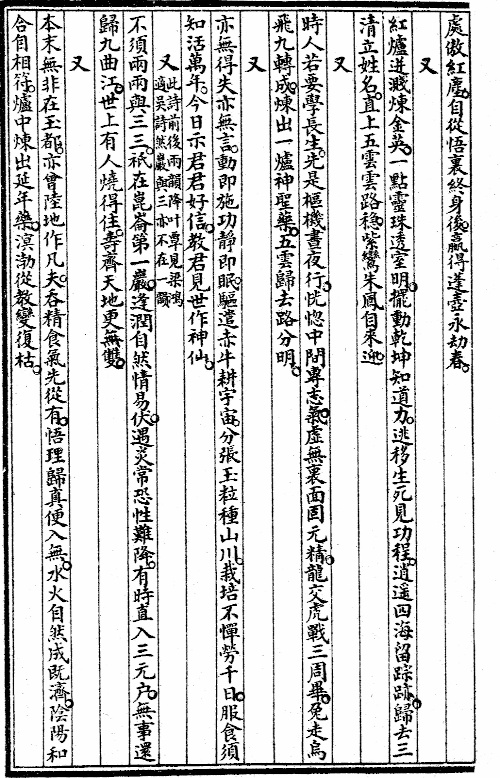 處傲紅塵。自從悟裏終身後。贏得蓬壺永劫春。
又
紅爐迸濺煉金英。一點靈珠透室明。擺動乾坤知道力。逃移生死見功程。逍遥四海留踪跡。歸去三
清立姓名。直上五雲雲路穩。紫鸞朱鳳自來迎。
又
時人若要學長生。先是樞機晝夜行。恍惚中間專志氣。虛無裏面固元精。龍交虎戰三周畢。兔走烏
飛九轉成。煉出一爐神聖藥。五雲歸去路分明。
又
亦無得失亦無言。動即施功靜即眠。驅遣赤牛耕宇宙。分張玉粒種山川。栽培不憚勞千日。服食須
知活萬年。今日示君君好信。教君見世作神仙。
又
此詩前後兩韻降叶覃見梁鴻
適吳詩然巖與三亦不在一韻
不須兩兩與三三。祇在崑崙第一巖。逢潤自然情易伏。遇炎常恐性難降。有時直入三元户。無事還
歸九曲江。世上有人燒得住。壽齊天地更無雙。
又
本末無非在玉都。亦曾陸地作凡夫。吞精食氣先從有。悟理歸真便入無。水火自然成既濟。陰陽和
合自相符。爐中煉出延年藥。溟渤從教變復枯。